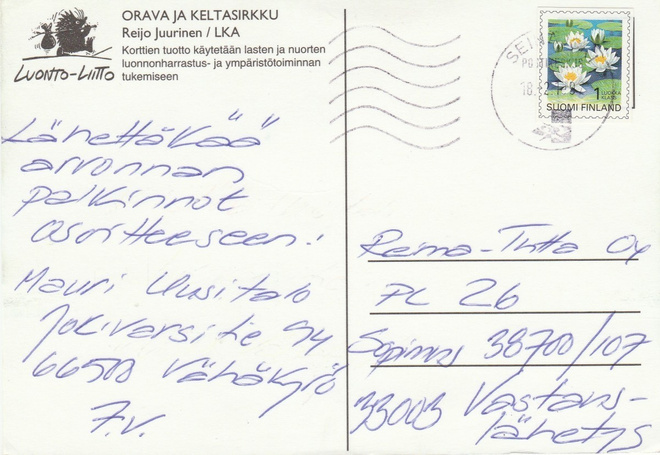 ORAVA JA KELTASIRKKU
Reijo Juurinen / LKA
Korttien tuotto käytetään lasten ja nuorten
luonnonharrastus- ja ympäristötoiminnan
tukemiseen
LUONTO-LIITTO
Lähettäkää
arvonnan
palkinnot
osoitteeseen:
Mauri Uusitalo
Jokivarsitie 94
66500 Vähäkyrö
7.v.
1 LUOKKA
KLASS
SUOMI FINLAND
Reima-Tutta Oy
PL 26
Sopimus 38700/107
33003 Vastaus-
lähetys